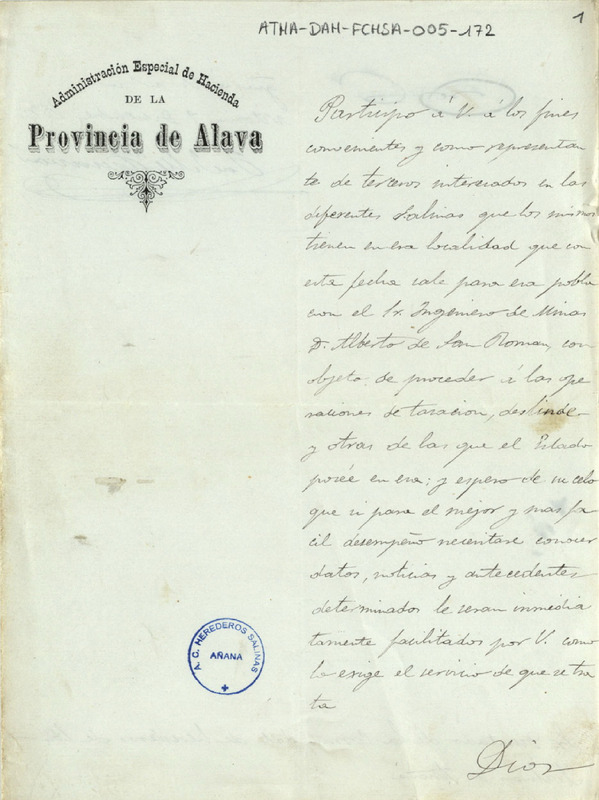 ATHA-DAH-FCHSA-005-172
1
Administración Especial de Hacienda
DE LA
Provincia de Alava
Participo á V. á los fines
convenientes y como representan
te de terceros interesados en las
diferentes Salinas que los mismos
tienen en esa localidad que con
esta fecha sale para esa pobla
cion el Sr. Ingeniero de Minas
D. Alberto de San Roman, con
objeto de proceder á las ope
raciones de tasacion, deslinde
y otras de las que el Estado
posée en esa; y espero de su celo
que si para el mejor y mas fa
cil desempeño necesitase conocer
datos, noticias y antecedentes
determinados le seran inmedia
tamente facilitados por V. como
lo exige el servicio de que se tra
ta
Dios
A. C. HEREDEROS SALINAS
AÑANA